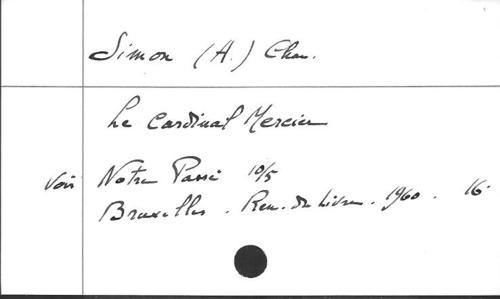 Simon (A.) Chan.
Le Cardinal Mercier
Voir Notre Passé 10/5
Bruxelles. Ren. du Livre. 1960. 16.